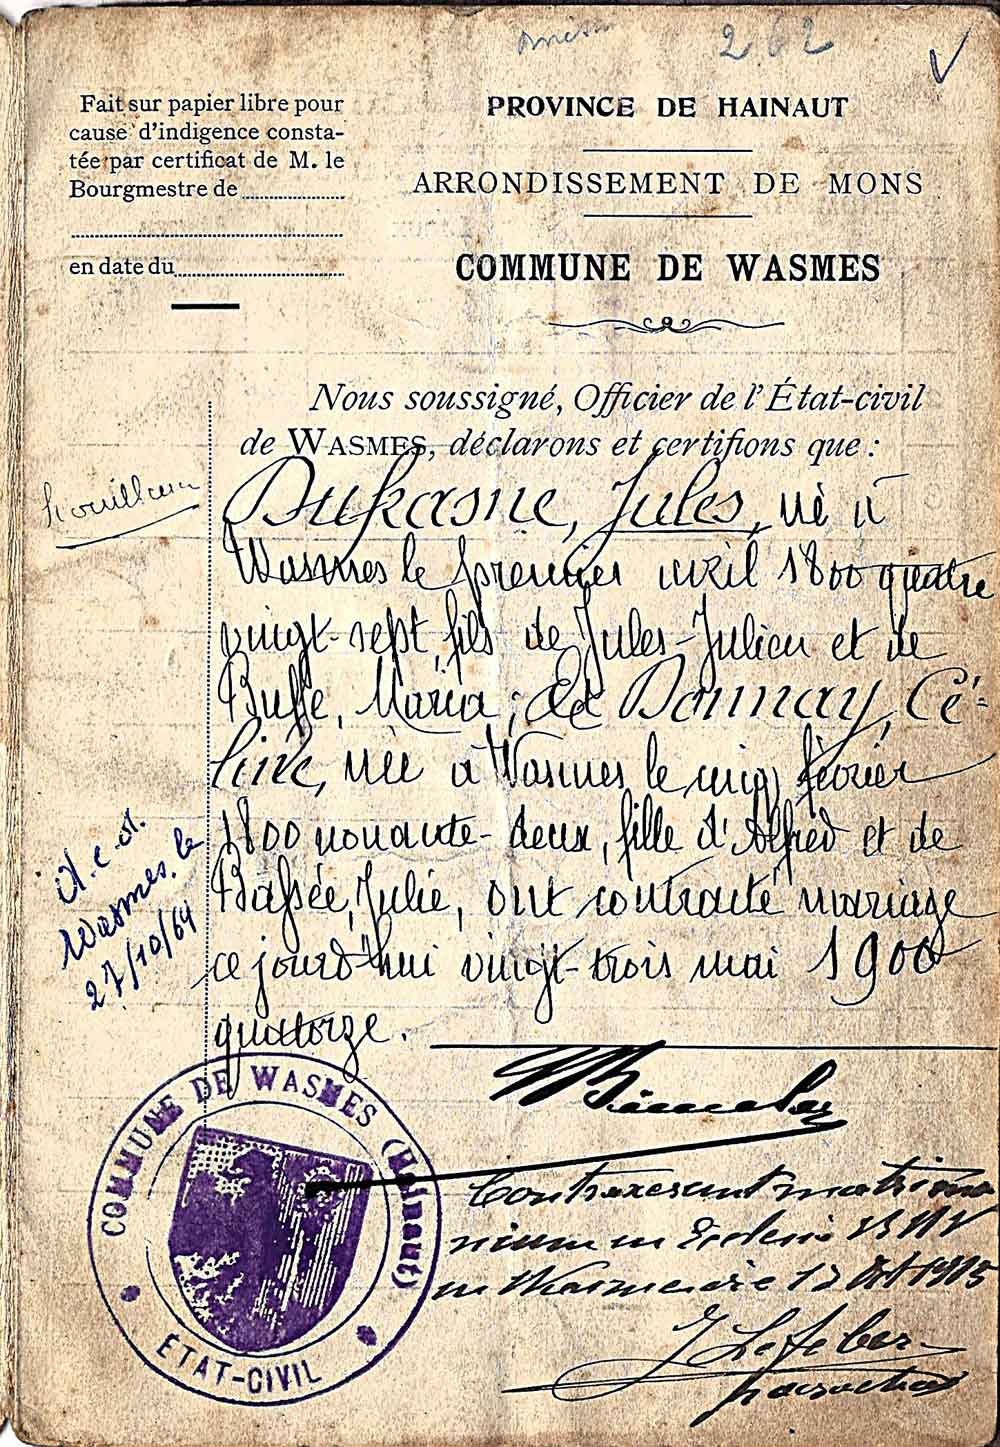 262
Fait sur papier libre pour
cause d'indigence consta-
tée par certificat de M. le
Bourgmestre de
en date du
PROVINCE DE HAINAUT
ARRONDISSEMENT DE MONS
COMMUNE DE WASMES
Nous soussigné, Officier de l'État-civil
de WASMES, déclarons et certifions que :
Dufrasne, Jules, né à
Wasmes le premier avril 1800 quatre
vingt-sept, fils de Jules-Julien et de
Buffe, Maria; et Donnay, Cé-
line, née à Wasmes le cinq février
1800 nonante-deux, fille d'Alfred et de
Bassée, Julie, ont contracté mariage
ce jourd'hui vingt-trois mai 1900
quatorze.
Wasmes, le
27/10/64
COMMUNE DE WASMES (Hainaut)
ÉTAT-CIVIL
Contraxerunt matrimo
nium in Ecclesia
J Lefeber